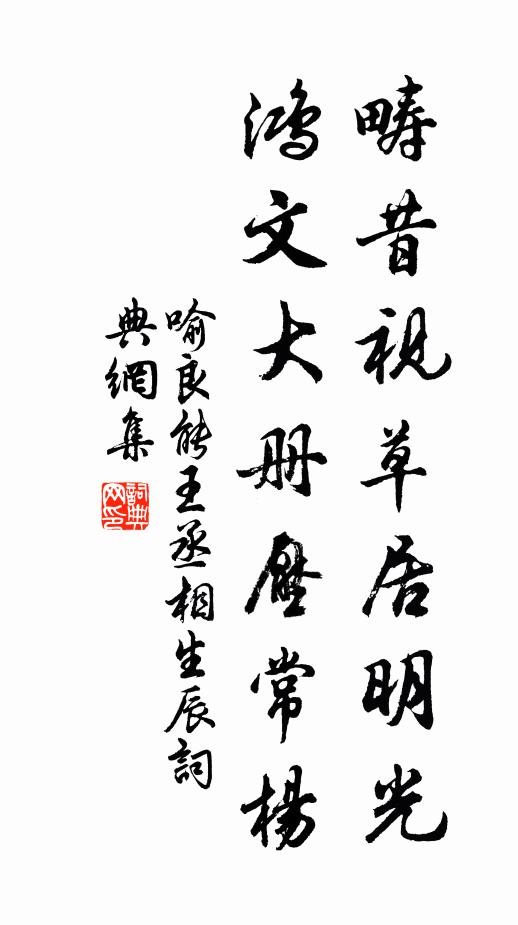 畴昔視草居明光
鴻文大册壓常楊
喻良能王丞相生辰詞
典網集
詞典网印